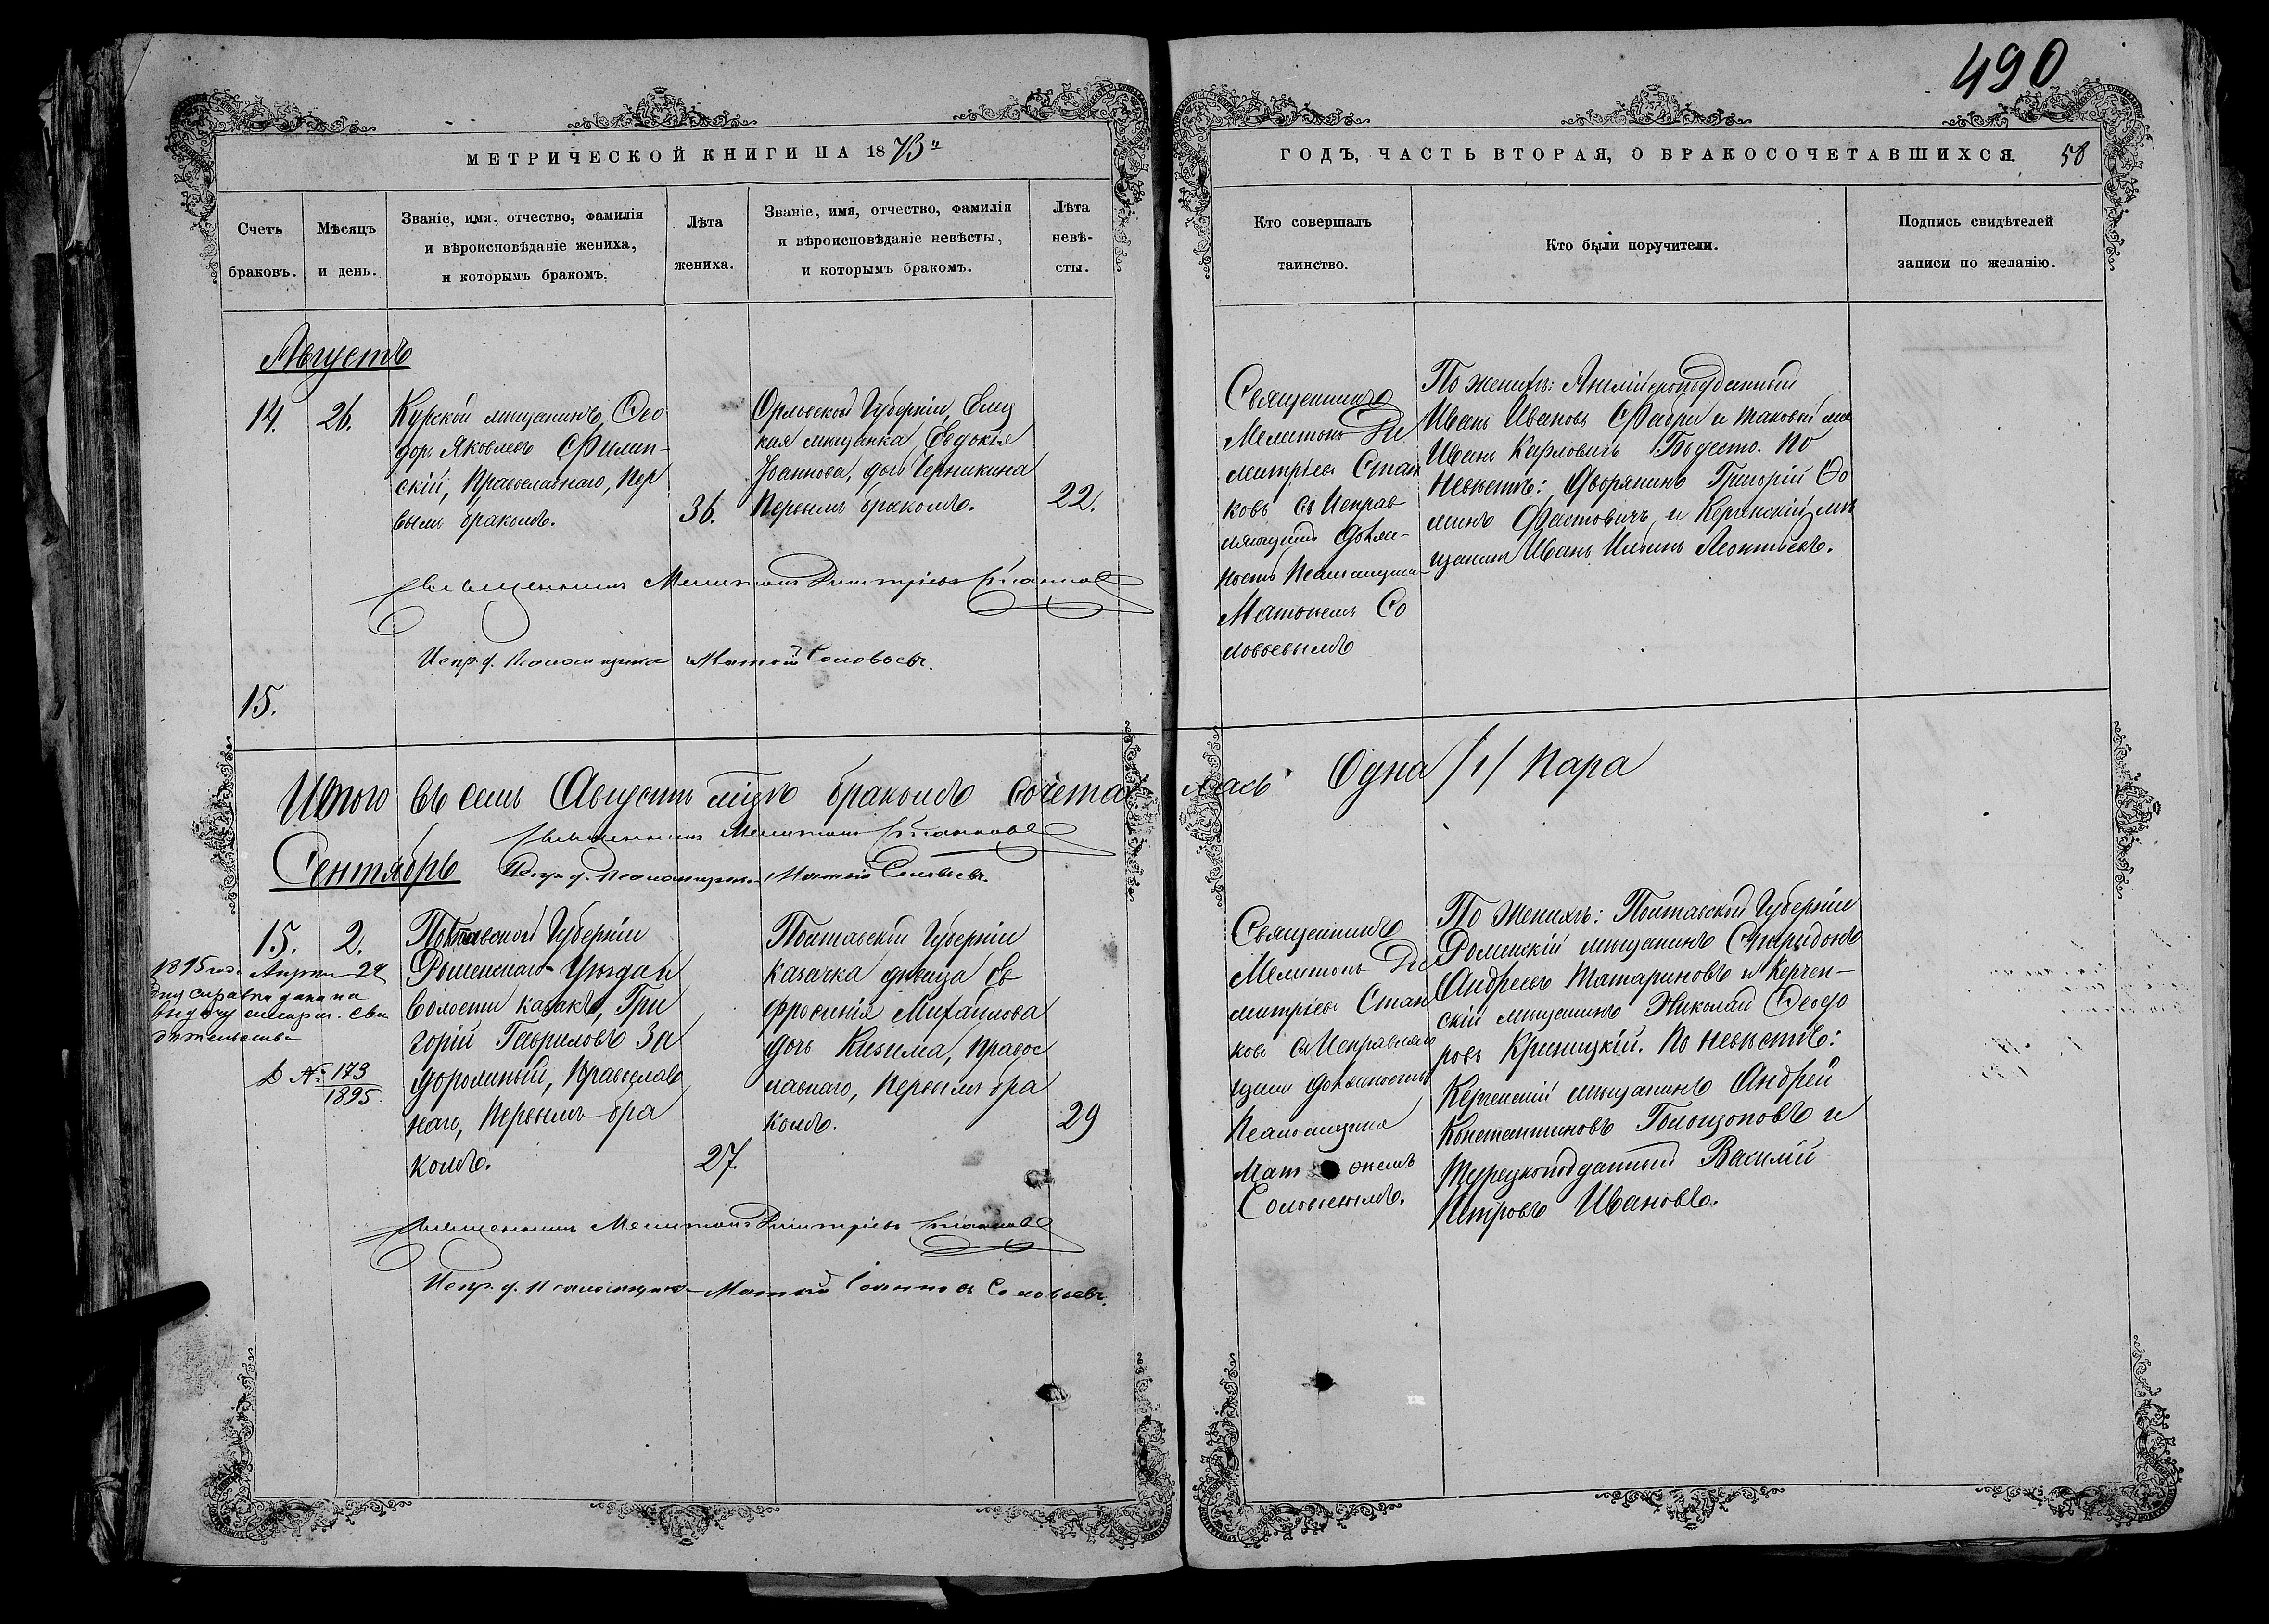 490
МЕТРИЧЕСКОЙ КНИГИ НА 1873й
ГОДЪ, ЧАСТЬ ВТОРАЯ, О БРАКОСОЧЕТАВШИХСЯ. 58
Счетъ
браковъ.
Мѣсяцъ
и день.
Званіе, имя, отчество, фамилія
и вѣроисповѣданіе жениха,
и которымъ бракомъ.
Лѣта
жениха.
Званіе, имя, отчество, фамилія
и вѣроисповѣданіе невѣсты,
и которымъ бракомъ.
Лѣта
невѣ-
сты.
Кто совершалъ
таинство.
Кто были поручители.
Подпись свидѣтелей
записи по желанію.
Августъ
14.
26.
Курской мѣщанинъ, Ѳео
доръ Яковлевъ Филип-
скій, Православнаго, Пер
вымъ бракомъ.
36.
Орловской Губерніи, Елец
кая мѣщанка, Евдокія
Іоаннова, дочь Черникина
Первымъ бракомъ.
22.
Священникъ
Мелитонъ Ди
митріевъ Стан
ковъ съ Исправ
ляющимъ долж-
ность Псаломщика
Матѳеемъ Со
ловьевымъ
По женихѣ: Англійскоподданный
Иванъ Ивановъ Фабри и таковой же
Иванъ Карловичъ Бодесто. По
Невѣстѣ: Дворянинъ Григорій Ѳо
минъ Фастовичъ и Керченскій мѣ
щанинъ Иванъ Ильинъ Леонтьевъ.
Священникъ Мелитонъ Димитріевъ Станковъ
Испр. д. Псаломщика Матѳей Соловьевъ.
15.
Итого въ семъ Августѣ м̃цѣ бракомъ сочета лась Одна /1/ Пара
Священникъ Мелитонъ Станковъ
Испр. д. Псаломщика Матѳей Соловьевъ.
Сентябрь
15.
2.
1895 года Апрѣля 24
дня справка дана на
выдачу метрич. сви
дѣтельства
№ 173
1895.
Полтавской Губерніи
Роменскаго Уѣзда и
волости казакъ, Гри
горій Гавриловъ За
дорожный, Православ
наго, Первымъ бра
комъ.
27.
Полтавской Губерніи
казачка дѣвица Ев
фросинія Михайлова
дочь Кизима, правос
лавнаго, Первымъ бра
комъ.
29
Священникъ
Мелитонъ Ди
митріевъ Стан
ковъ съ Исправляю
щимъ должность
Псаломщика
Мат ѳеемъ
Соловьевымъ.
По Женихѣ: Полтавской Губерніи
Роменскій мѣщанинъ Спиридонъ
Андреевъ Татариновъ и Керчен-
скій мѣщанинъ Николай Ѳеодо
ровъ Криницкій. По невѣстѣ:
Керченскій мѣщанинъ Андрей
Константиновъ Голощоповъ и
Турецкоподданный Василій
Петровъ Ивановъ.
Священникъ Мелитонъ Димитріевъ Станковъ
Испр. д. Псаломщика Матѳей Іоанновъ Соловьевъ.